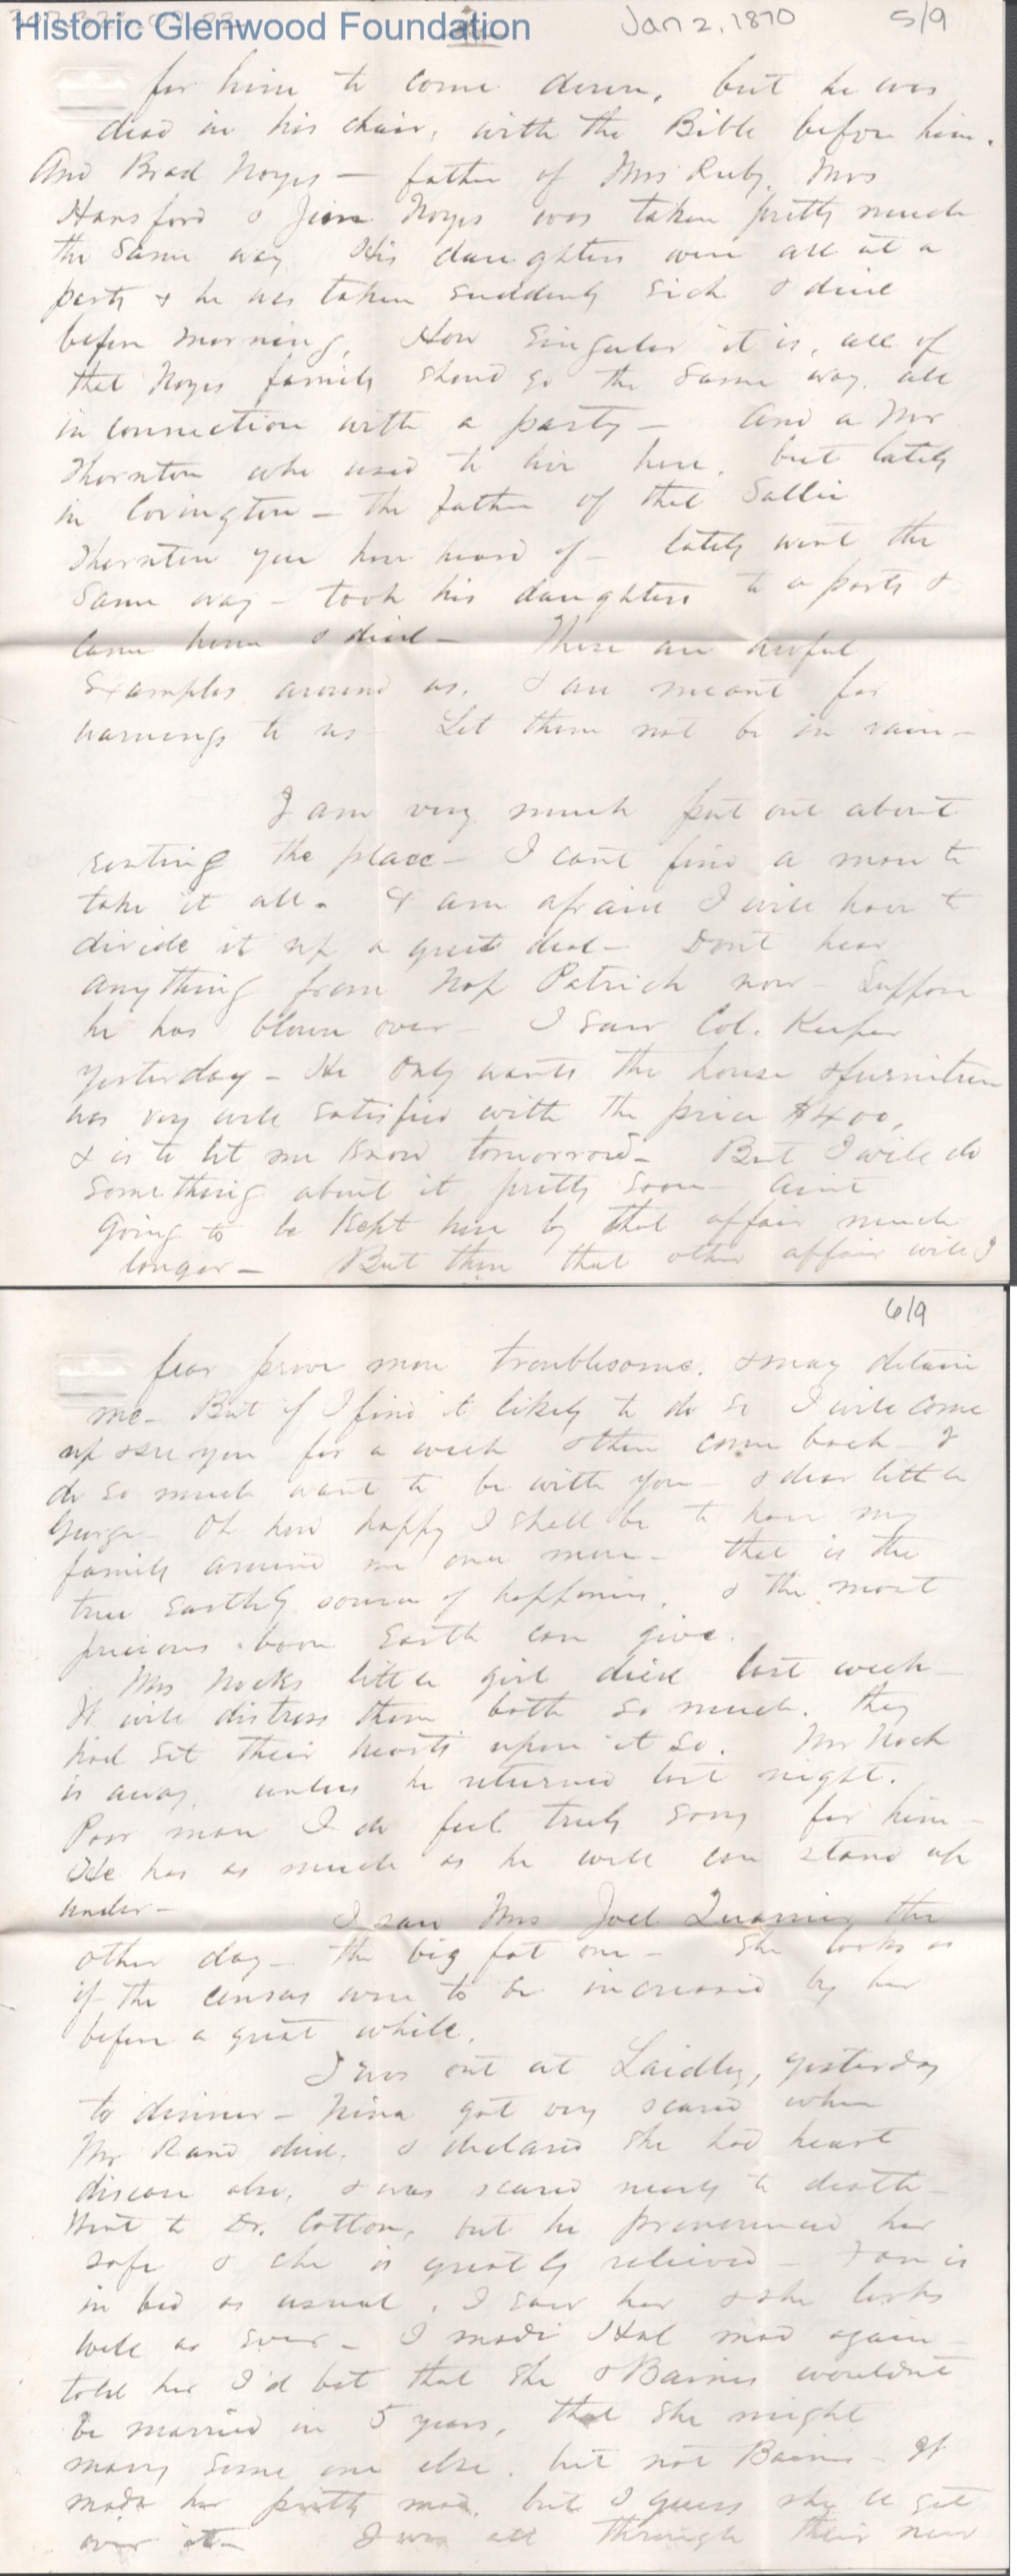 Historic Glenwood Foundation
Jan 2, 1870
5/9
for him to come down, but he was
dead in his chair, with the Bible before him.
And Brad Noyes — father of Mrs Ruby, Mrs
Hansford & Jim Noyes was taken pretty much
the same way. His daughters were all at a
party & he was taken suddenly sick & died
before morning, How singular it is, all of
that Noyes family should go the same way, all
in connection with a party — And a Mr
Thornton who used to live here, but lately
in Covington — the father of that Sallie
Thornton you have heard of — lately went the
same way — took his daughters to a party &
came home & died — These are awful
examples around us, & are meant for
warnings to us — Let them not be in vain —
I am very much put out about
renting the place — I cant find a man to
take it all. & am afraid I will have to
divide it up a great deal — Don't hear
anything from Nap Patrick now — Suppose
he has blown over — I saw Col. Keifer
yesterday — He only wants the house & furniture
was very well satisfied with the price $400,
& is to let me know tomorrow — But I will do
something about it pretty soon — aint
going to be kept here by that affair much
longer — But then that other affair will I
6/9
fear prove more troublesome, & may detain
me — But if I find it likely to do so I will come
up & see you for a week & then come back — I
do so much want to be with you — & dear little
George — Oh how happy I shall be to have my
family around me once more — that is the
true earthly source of happiness, & the most
precious boon Earth can give.
Mrs Nocks little girl died last week —
It will distress them both so much. they
had set their hearts upon it so. Mr Nock
is away, unless he returned last night.
Poor man I do feel truly sorry for him —
He has as much as he well can stand up
under — I saw Mrs Joel Quarrier the
other day — the big fat one — She looks as
if the census were to be increased by her
before a great while.
I was out at Laidley, yesterday
to dinner — Nina got very scared when
Mr Rand died, & declared she had heart
disease also, & was scared nearly to death —
Went to Dr. Cotton, but he pronounced her
safe & she is greatly relieved — Fan is
in bed as usual, I saw her & she looks
well as ever — I made Hal mad again —
told her I'd bet that she & Baines wouldnt
be married in 5 years, that she might
marry some one else, but not Baines — It
made her pretty mad, but I guess she'll get
over it — I was all through their new